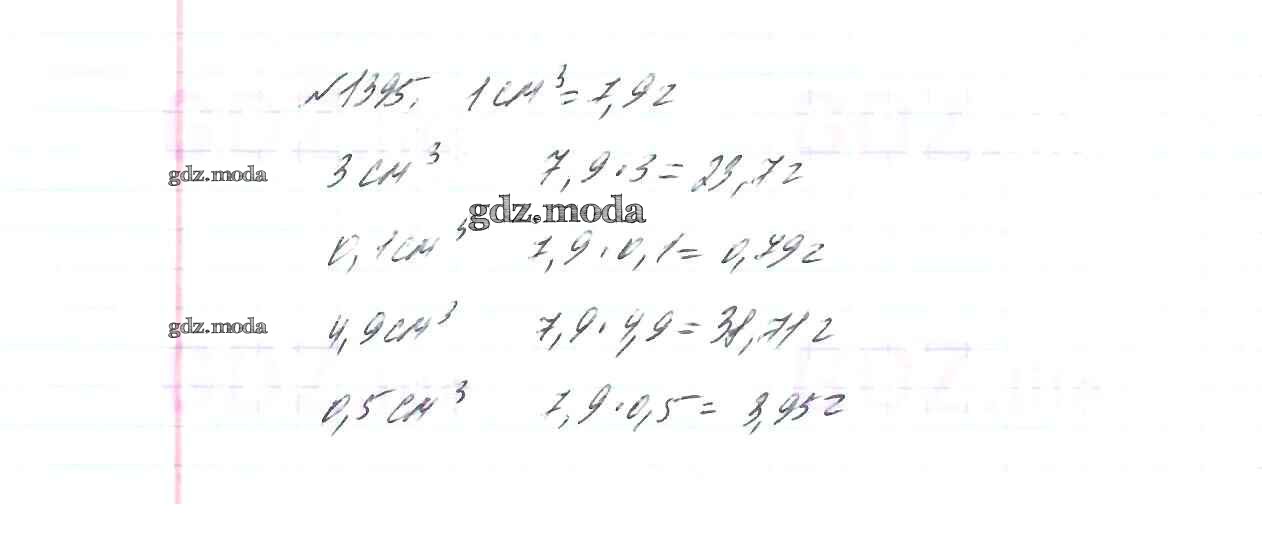 №1395. 1 см³ = 7,9 г
gdz.moda 3 см³ 7,9 · 3 = 23,7 г
gdz.moda
0,1 см³ 7,9 · 0,1 = 0,79 г
gdz.moda 4,9 см³ 7,9 · 4,9 = 38,71 г
0,5 см³ 7,9 · 0,5 = 3,95 г